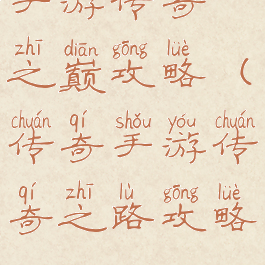 手游传奇
zhī diān gōng lüè
之巅攻略（
chuán qí shǒu yóu chuán
传奇手游传
qí zhī lù gōng lüè
奇之路攻略